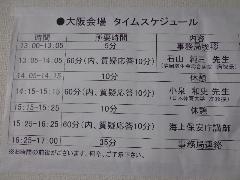 ●大阪会場 タイムスケジュール
時間 所要時間 内容
13:00-13:05 5分 事務局説明
13:05-14:05 60分(内、質疑応答10分) 石山 純三 先生
14:05-14:15 10分 休憩
14:15-15:15 60分(内、質疑応答10分) 小泉 和史 先生
15:15-15:25 10分 休憩
15:25-16:25 60分(内、質疑応答10分) 海上保安庁講師
16:25-17:00 35分 事務局連絡
※お時間の前後がございます、何卒、ご了承下さい。